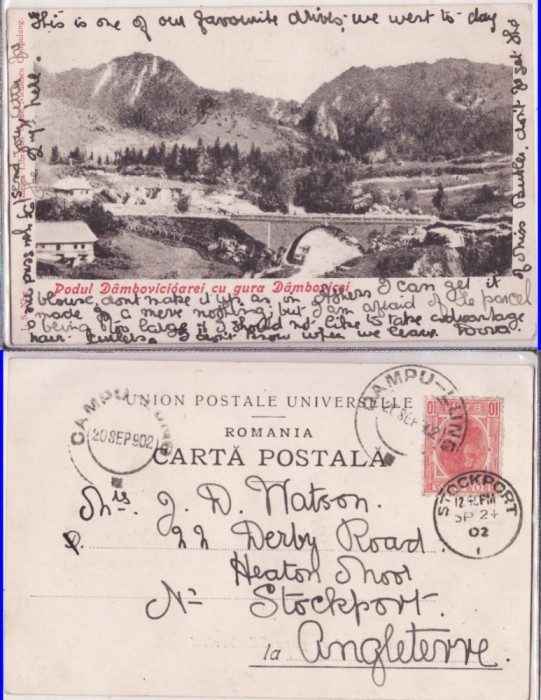 This is one of our favourite drives; we went to day
Podul Dâmbovicioarei cu gura Dâmbovicei
blouse, dont make it up as in Athens I can get it
made for a mere nothing; but I am afraid of the parcel
being too large & I should not like to take advantage
of Miss Parker, dont get the
hair curlers. I dont know when we leave
UNION POSTALE UNIVERSELLE
ROMANIA
CARTĂ POSTALĂ
CAMPU-LUNG
20 SEP 902
CAMPU-LUNG
STOCKPORT
12 45 PM
SP 24
02
1
Mrs J. D. Watson.
22 Derby Road.
Heaton Moor
Nr Stockport.
la Angleterre.